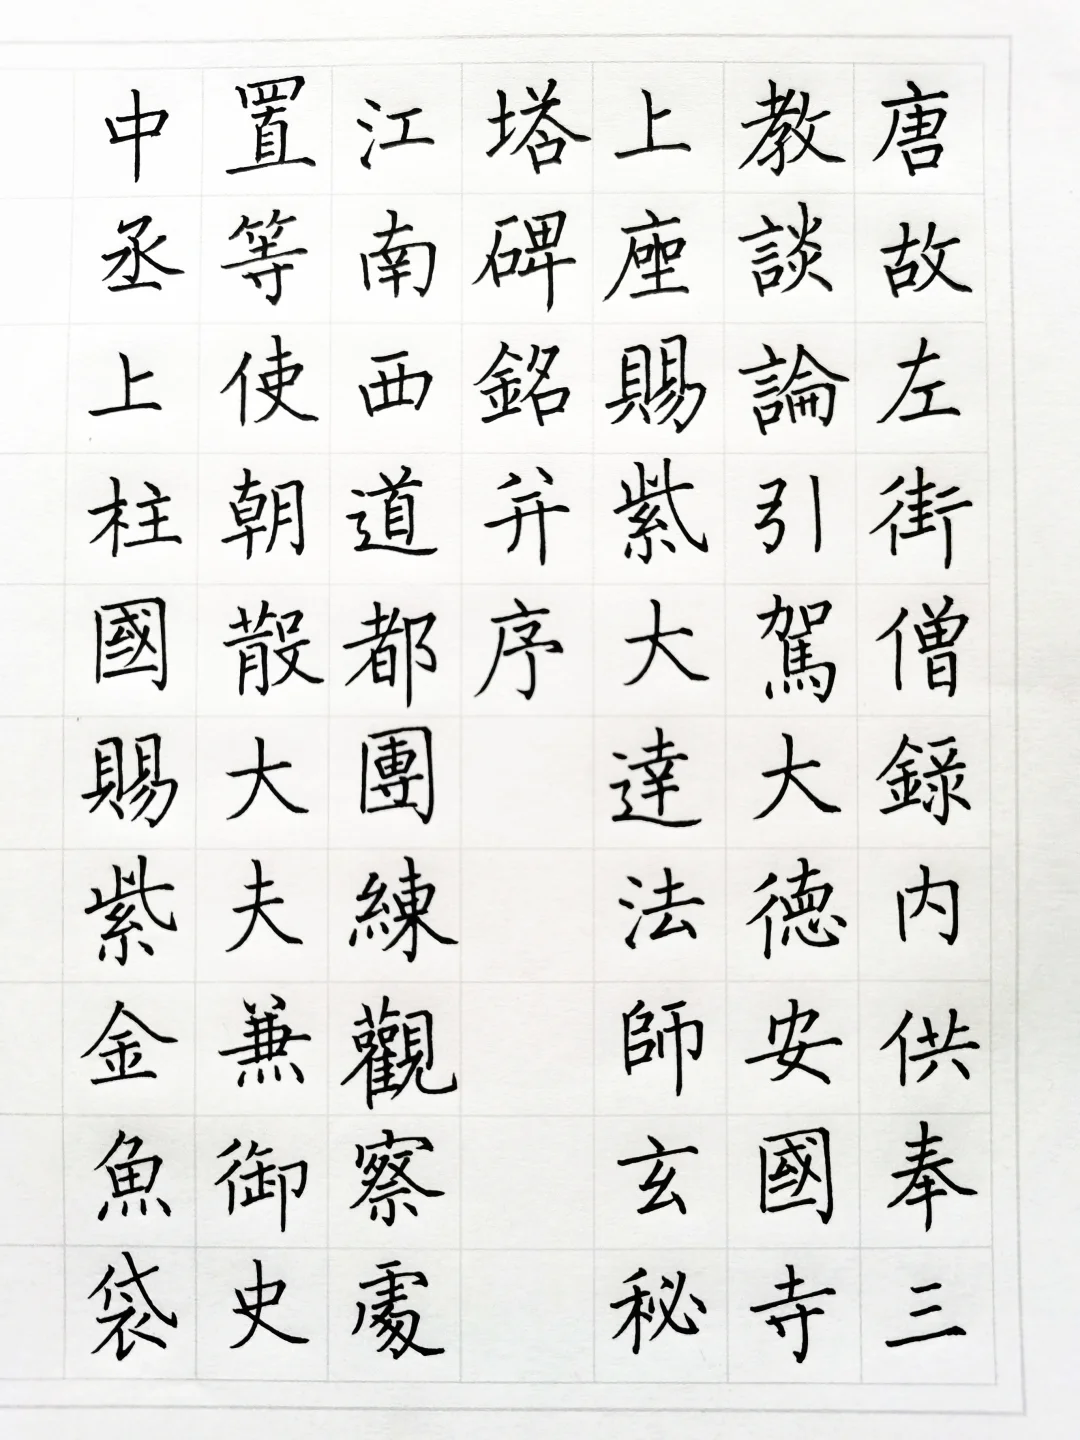 唐故左街僧録内供奉三
教談論引駕大德安國寺
上座賜紫大達法師玄秘
塔碑銘并序
江南西道都團練觀察處
置等使朝散大夫兼御史
中丞上柱國賜紫金魚袋